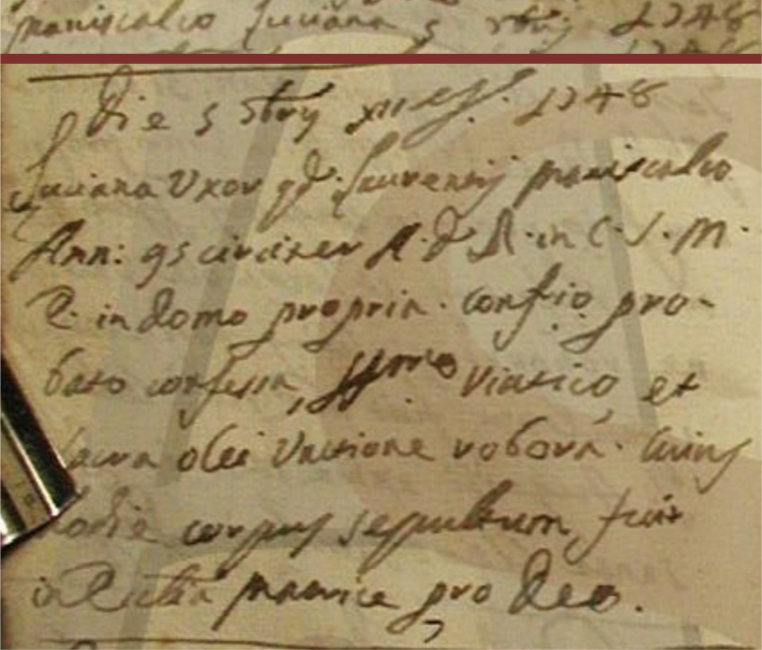 maniscalco Luciana 5 8bris 1748
Die 5 8bris XII Ind. 1748
Luciana Uxor qd. Laurentij maniscalco
Ann: 95 circiter A. D. R. in C. S. M.
E. in domo propria. confrio pro-
bato confessa, SSmo Viatico, et
sacra olei Unctione robora. Cuius
hodie corpus sepultum fuit
in Eccla matrice pro Deo.